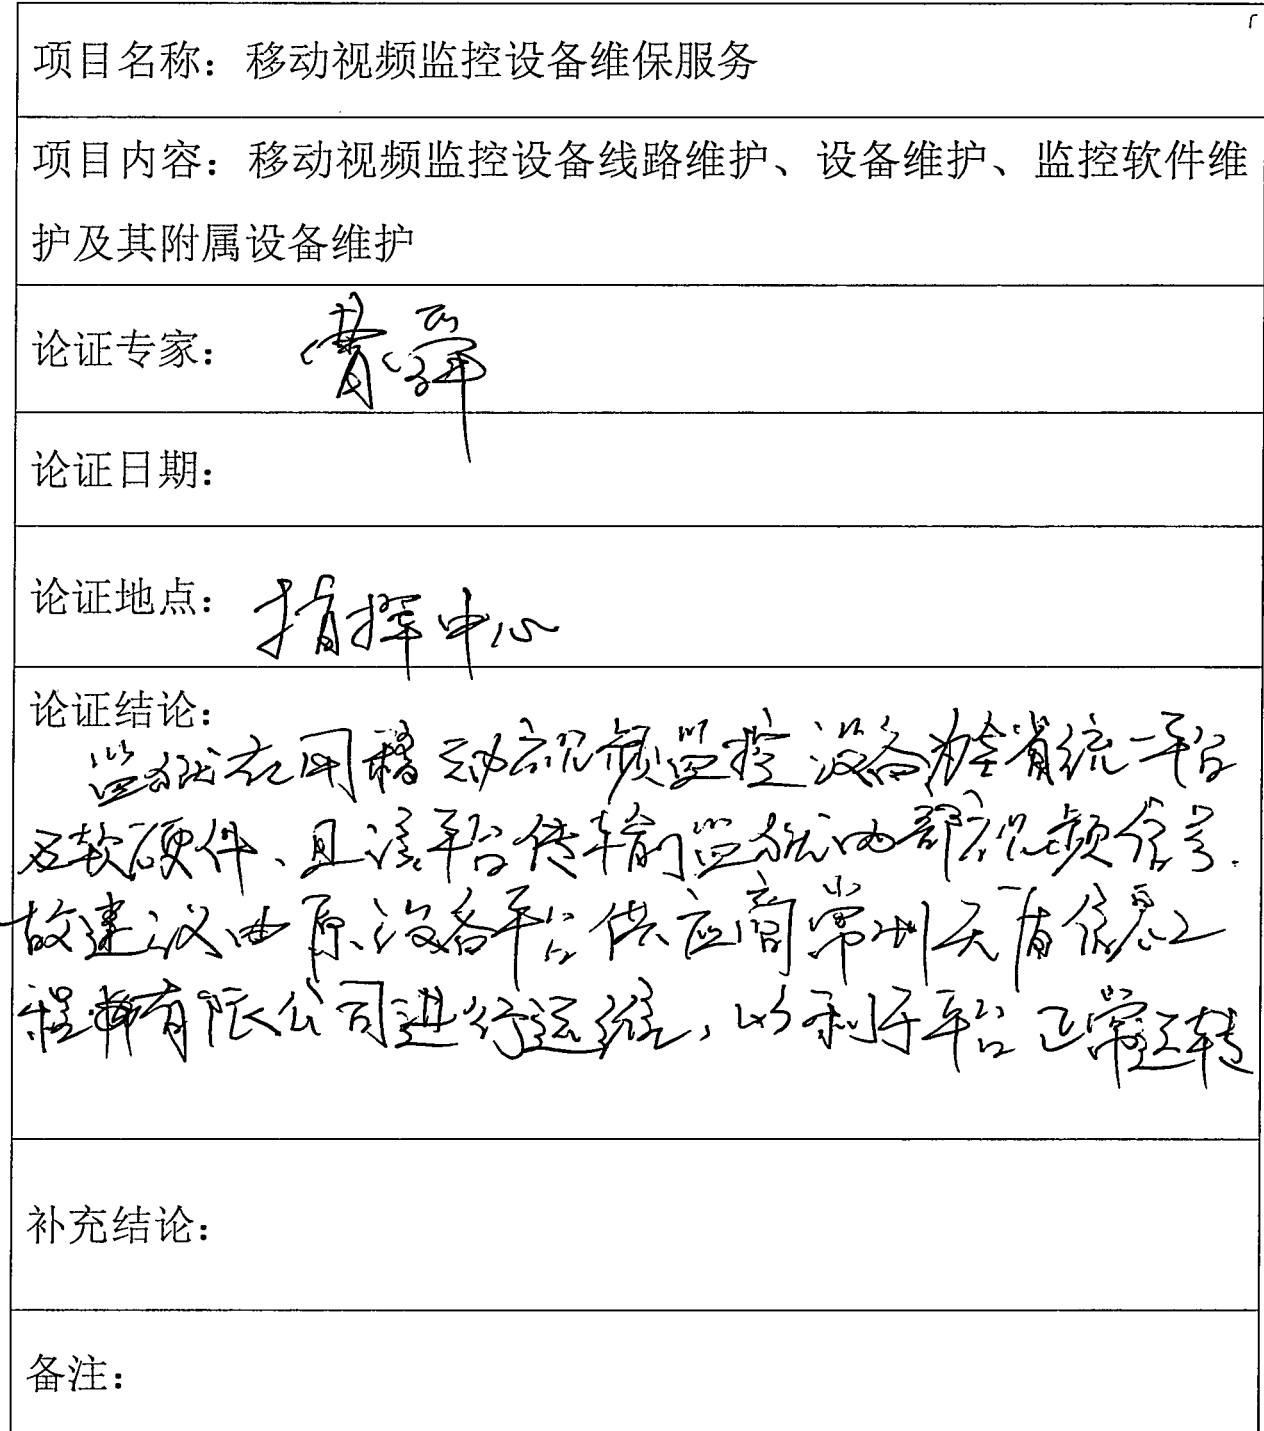 项目名称：移动视频监控设备维保服务
项目内容：移动视频监控设备线路维护、设备维护、监控软件维
护及其附属设备维护
论证专家：
论证日期：
论证地点：指挥中心
论证结论：
监狱在用移动视频监控设备为全省统一平台
及软硬件、且该平台传输监狱内部视频信号.
故建议由原设备平台供应商常州天信息工
程有限公司进行运维，以利于平台正常运转
补充结论：
备注：